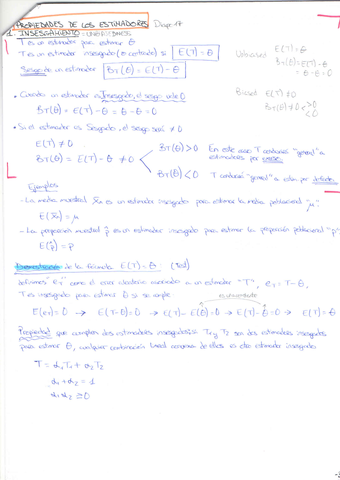 PROPIEDADES DE LOS ESTIMADORES Diapo 17
1. INSESGAMIENTO
T es un estimador para estimar θ
T es un estimador insesgado (o centrado) si E(T) = θ
Sesgo de un estimador B_T(θ) = E(T) - θ
Unbiased E(T) = θ
B_T(θ) = E(T) - θ
= θ - θ = 0
Biased E(T) ≠ θ
B_T(θ) ≠ 0 >0
<0
• Cuando un estimador es Insesgado, el sesgo vale 0
B_T(θ) = E(T) - θ = θ - θ = 0
• Si el estimador es Sesgado, el sesgo será ≠ 0
E(T) ≠ θ
B_T(θ) = E(T) - θ ≠ 0
B_T(θ) > 0 En este caso T conduce "general" a estimaciones por exceso.
B_T(θ) < 0 T conduce "general" a estim por defecto.
Ejemplos
- La media muestral x̄n es un estimador insesgado para estimar la media poblacional "μ".
E(x̄n) = μ
- La proporción muestral p̂ es un estimador insesgado para estimar la proporción poblacional "p"
E(p̂) = p
Demostración de la fórmula E(T) - θ : (Test)
definimos "e_T" como el error aleatorio asociado a un estimador "T", e_T = T - θ,
T es insesgado para estimar θ si se cumple
E(e_T) = 0 → E(T - θ) = 0 → E(T) - E(θ) = 0 → E(T) - θ = 0 → E(T) = θ
Propiedad que cumplen dos estimadores insesgados: si T₁ y T₂ son dos estimadores insesgados
para estimar θ, cualquier combinación lineal convexa de ellos es otro estimador insesgado
T = α₁T₁ + α₂T₂
α₁ + α₂ = 1
α₁ α₂ ≥ 0